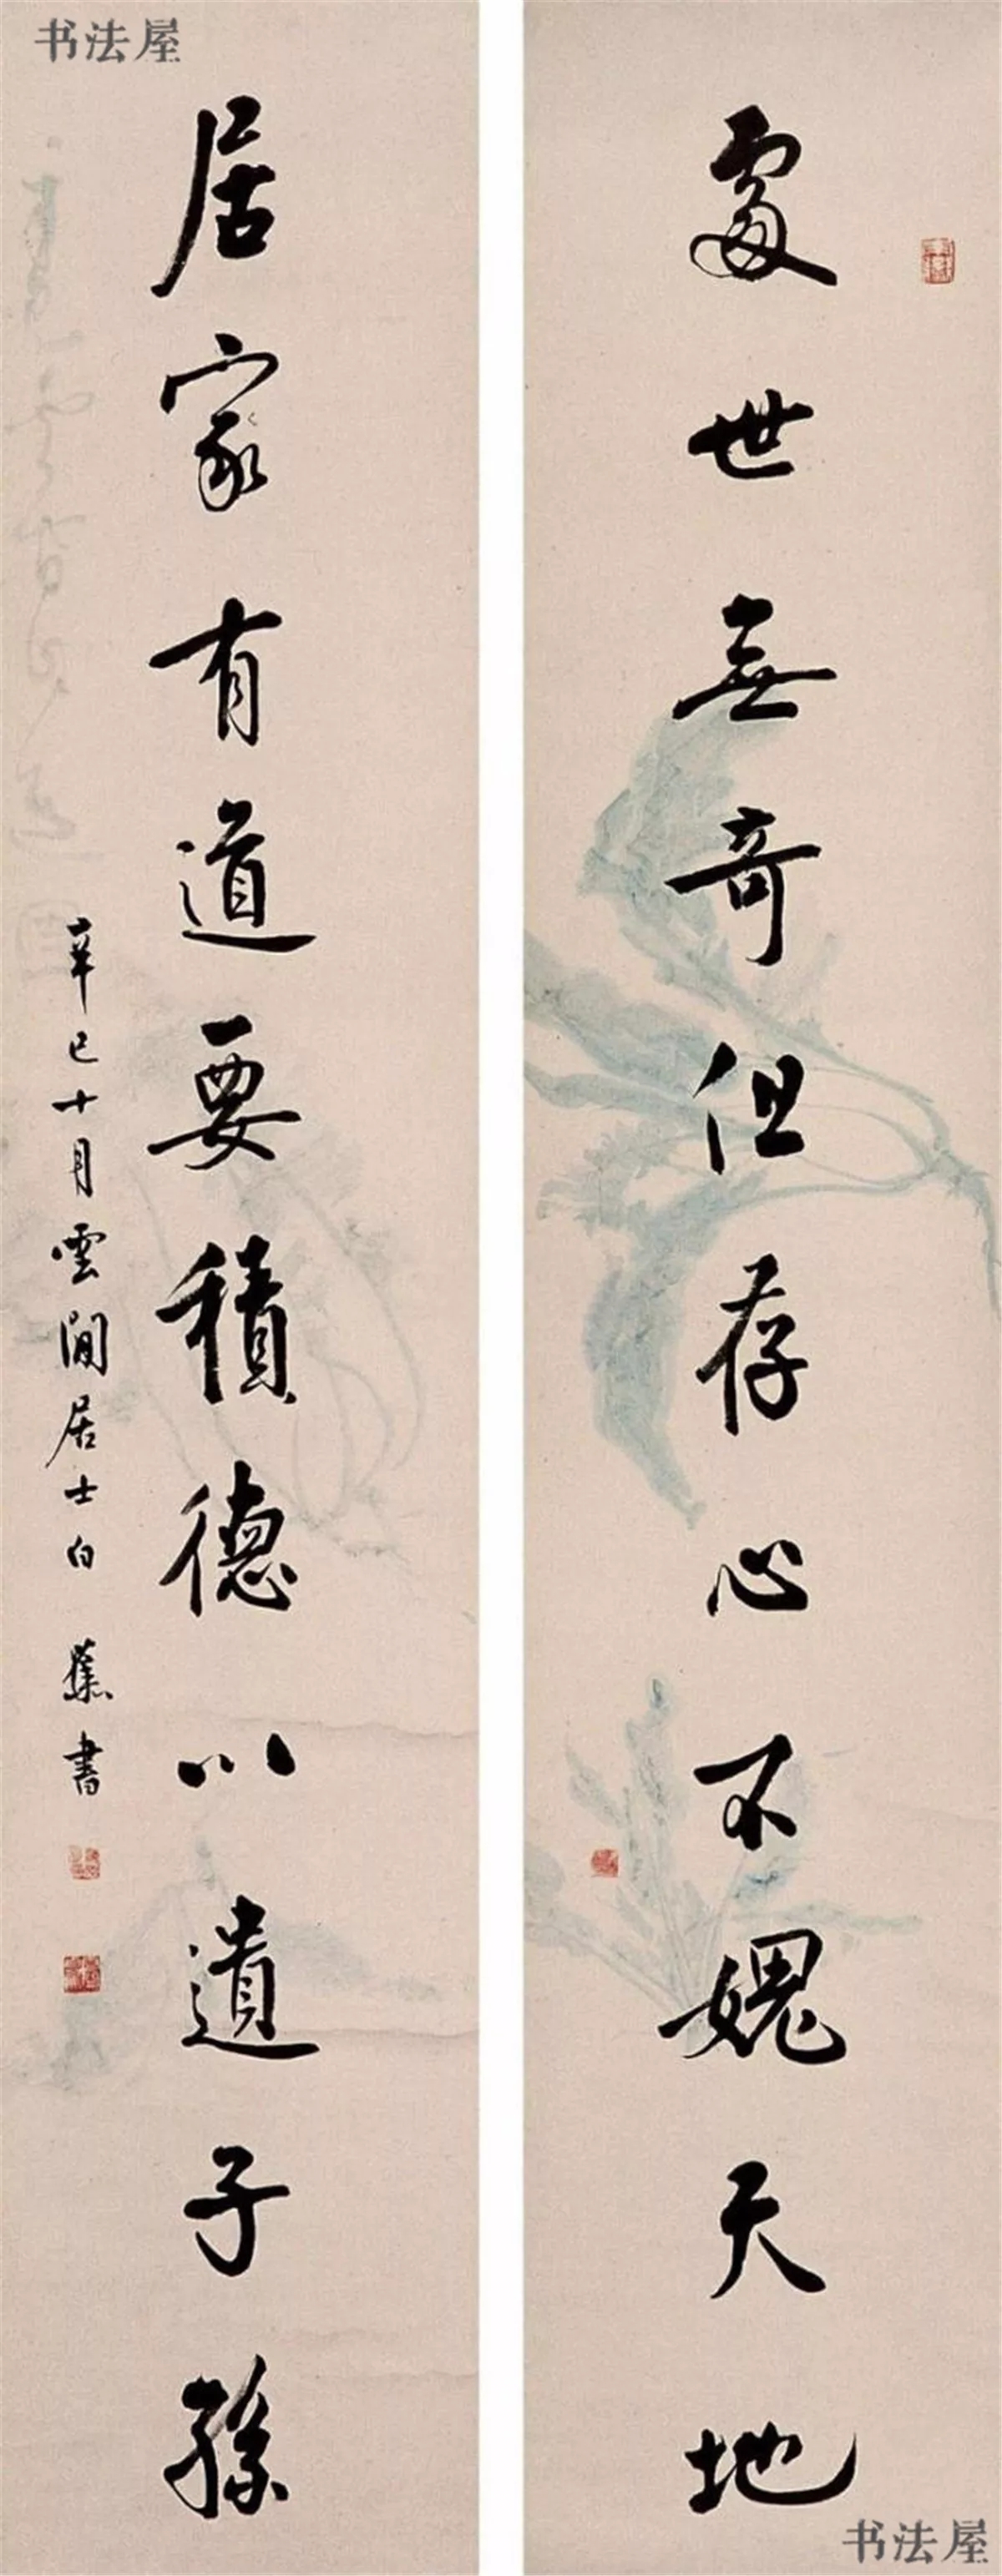 书法屋
處世無奇但存心不媿天地
居家有道要積德以遺子孫
辛巳十月雲間居士白蕉書
书法屋